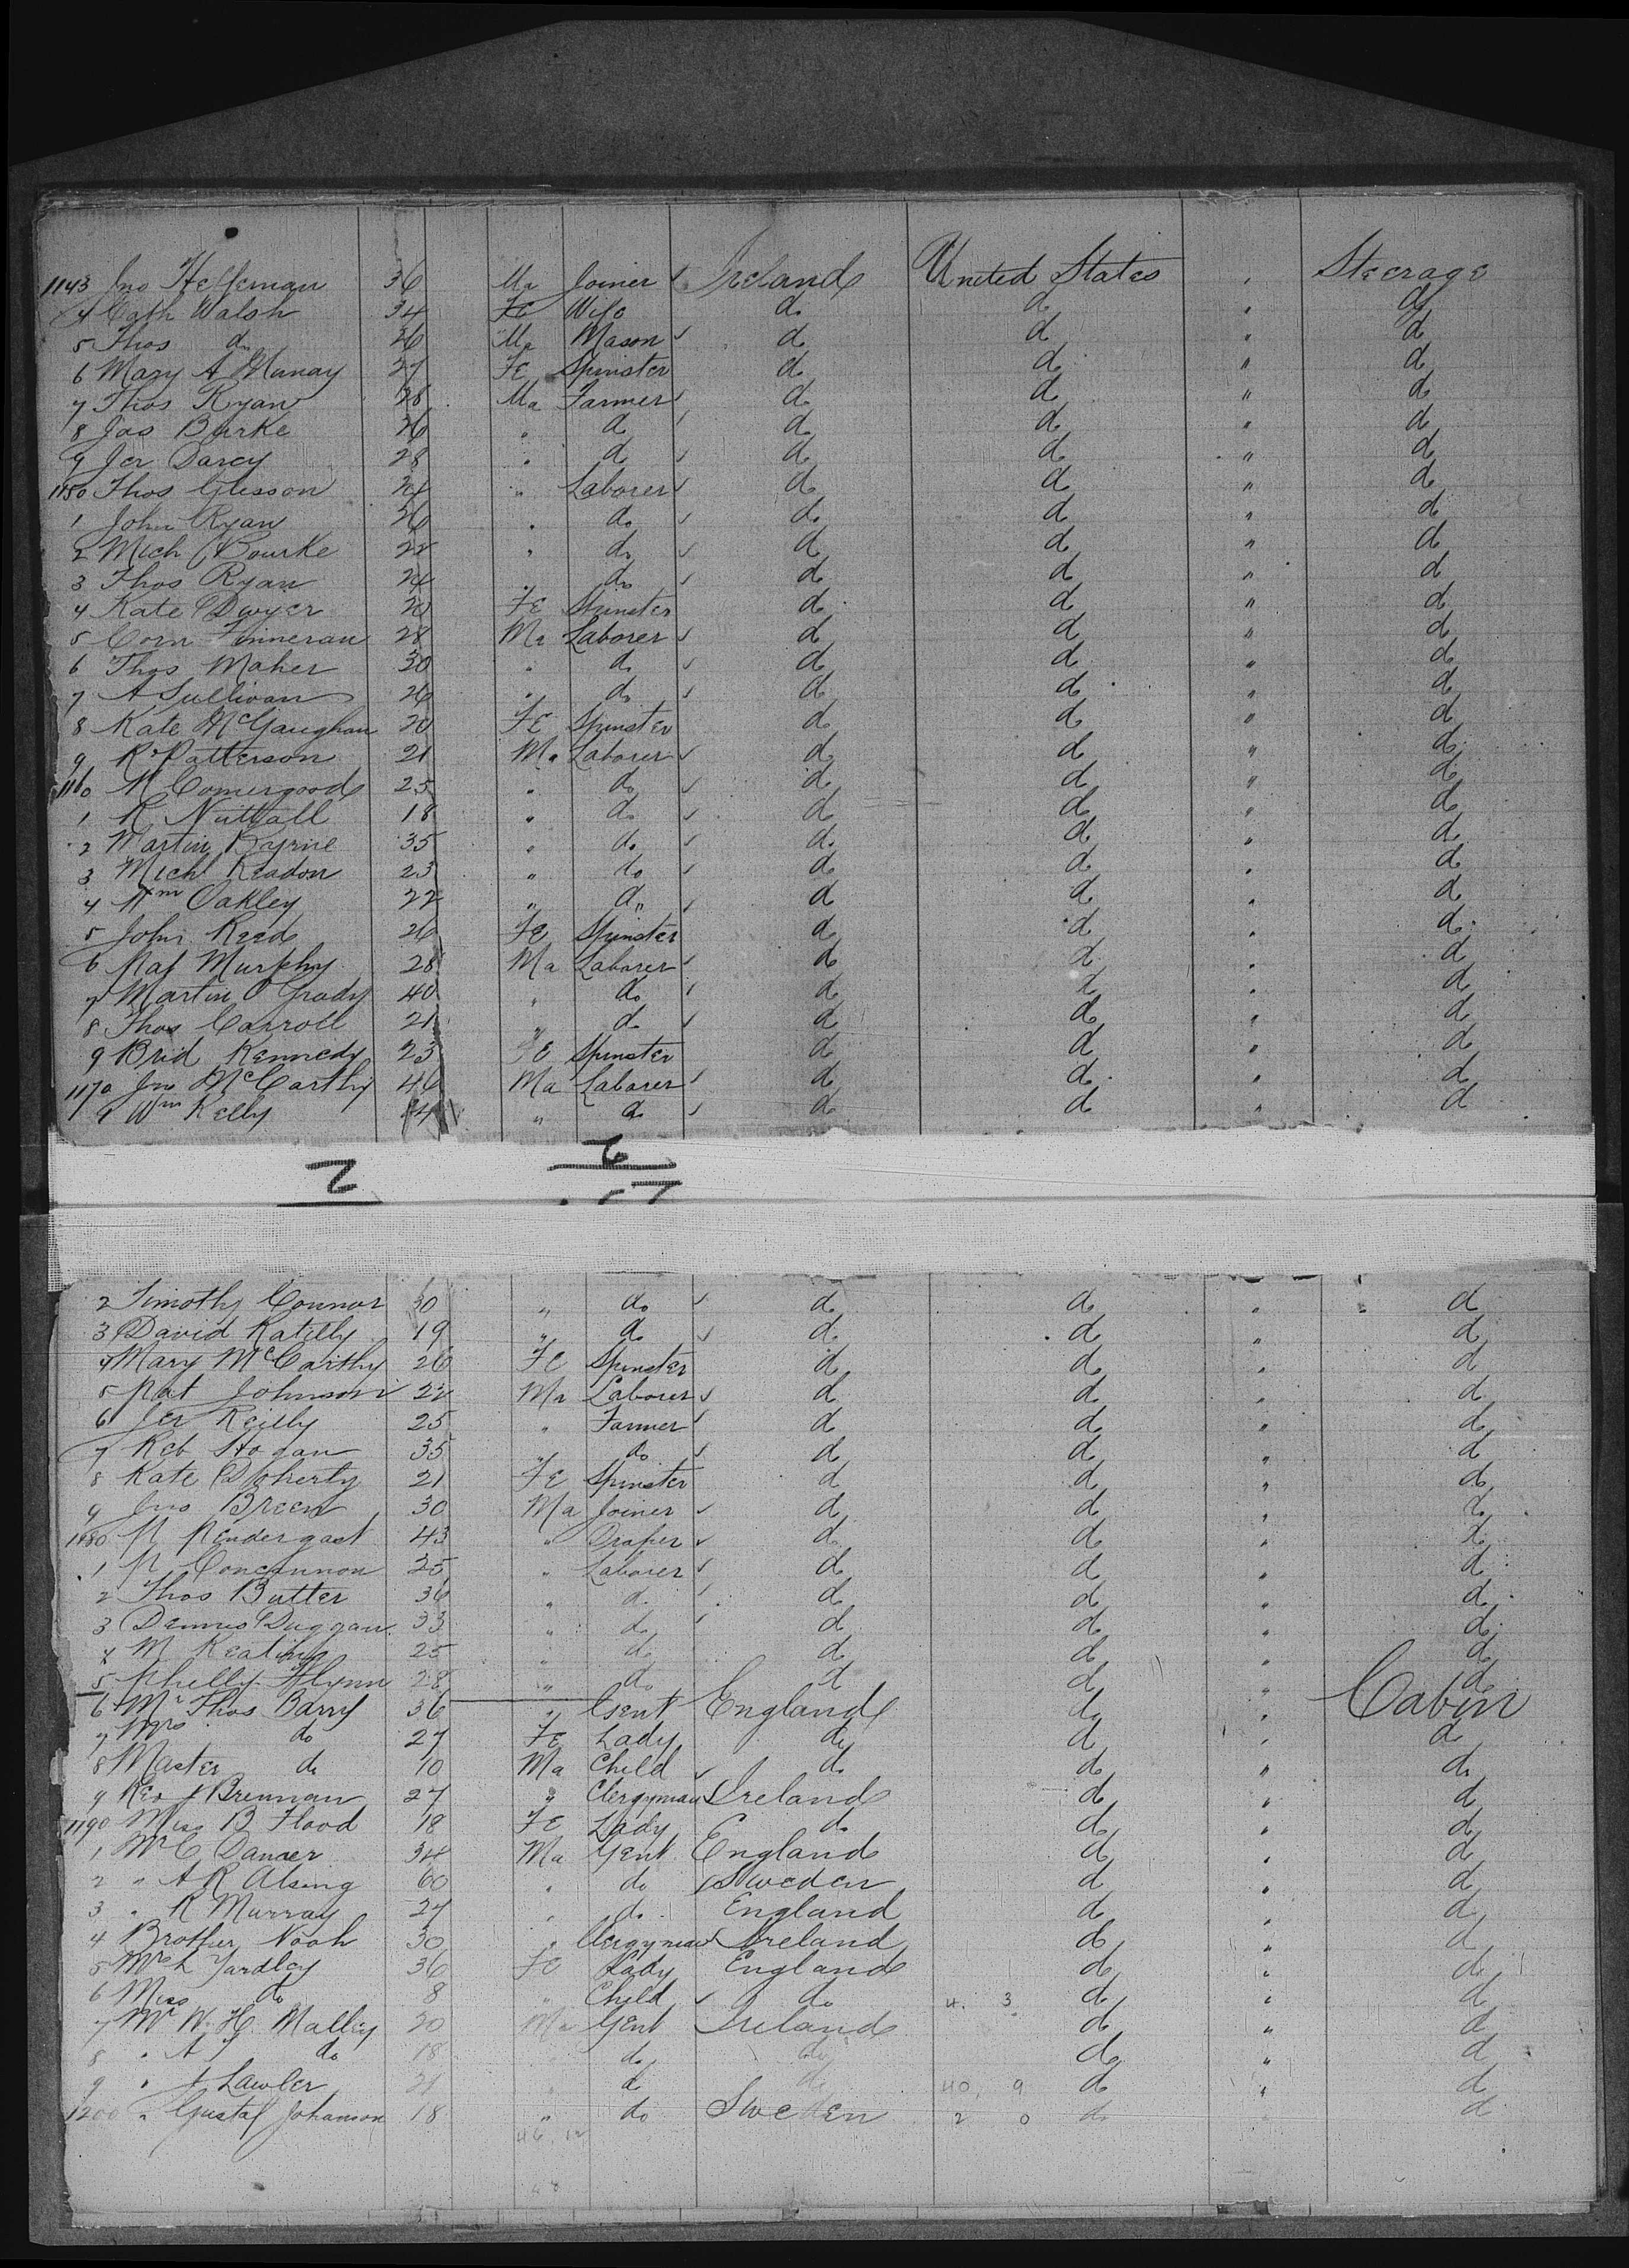 1143 Jno Heffernan 36 Ma Joiner ✓ Ireland United States " Steerage
4 Cath Walsh 34 Fe Wife do do " do
5 Thos do 26 Ma Mason ✓ do do " do
6 Mary A Murray 27 Fe Spinster do do " do
7 Thos Ryan 28 Ma Farmer ✓ do do " do
8 Jas Burke 26 " do ✓ do do " do
9 Jer Darcy 28 " do ✓ do do " do
1150 Thos Glisson 24 " Laborer ✓ do do " do
1 John Ryan 26 " do ✓ do do " do
2 Mich Bourke 22 " do ✓ do do " do
3 Thos Ryan 24 " do ✓ do do " do
4 Kate Dwyer 20 Fe Spinster do do " do
5 Corn Finneran 28 Ma Laborer ✓ do do " do
6 Thos Maher 30 " do ✓ do do " do
7 A Sullivan 26 " do ✓ do do " do
8 Kate McGaughan 20 Fe Spinster do do " do
9 R Patterson 21 Ma Laborer ✓ do do " do
1160 M Comergood 25 " do ✓ do do " do
1 R Nuttall 18 " do ✓ do do " do
2 Martin Byrne 35 " do ✓ do do " do
3 Michl Readon 23 " do ✓ do do " do
4 Wm Oakley 22 " do ✓ do do " do
5 John Reed 26 Fe Spinster do do " do
6 Pat Murphy 28 Ma Laborer ✓ do do " do
7 Martin O Grady 40 " do ✓ do do " do
8 Thos Carroll 21 " do ✓ do do " do
9 Brid Kennedy 23 Fe Spinster do do " do
1170 Jno McCarthy 46 Ma Laborer ✓ do do " do
1 Wm Kelly 24 " do ✓ do do " do
2 Timothy Connor 30 " do ✓ do do " do
3 David Ratilly 19 " do ✓ do do " do
4 Mary McCarthy 26 Fe Spinster do do " do
5 Pat Johnson 22 Ma Laborer ✓ do do " do
6 Jer Reilly 25 " Farmer ✓ do do " do
7 Reb Hogan 35 " do ✓ do do " do
8 Kate Doherty 21 Fe Spinster do do " do
9 Jno Breen 30 Ma Joiner ✓ do do " do
1180 P Pendergast 43 " Draper ✓ do do " do
1 P Concannon 25 " Laborer ✓ do do " do
2 Thos Butter 36 " do ✓ do do " do
3 Dennis Duggan 33 " do ✓ do do " do
4 M Keating 25 " do do do " do
5 Phelly Flynn 28 " do do do " do
6 Mr Thos Barry 36 " Gent England do " Cabin
7 Mrs do 27 Fe Lady do do " do
8 Master do 10 Ma Child ✓ do do " do
9 Rev J Brennan 27 " Clergyman Ireland do " do
1190 Miss B Flood 18 Fe Lady do do " do
1 Mr C Danaer 34 Ma Gent England do " do
2 " A R Alsing 60 " do Sweden do " do
3 " R Murray 27 " do England do " do
4 Brother Noah 30 " Clergyman Ireland do " do
5 Mrs L Yardley 36 Fe Lady England do " do
6 Miss do 8 " Child ✓ do 4. 3 do " do
7 Mr W. H. Malley 20 Ma Gent Ireland do " do
8 " A J do 18 do do do " do
9 " J Lawler 21 do do 40, 9 do " do
1200 " Gustaf Johanson 18 " do Sweden 2 0 do do
46 12